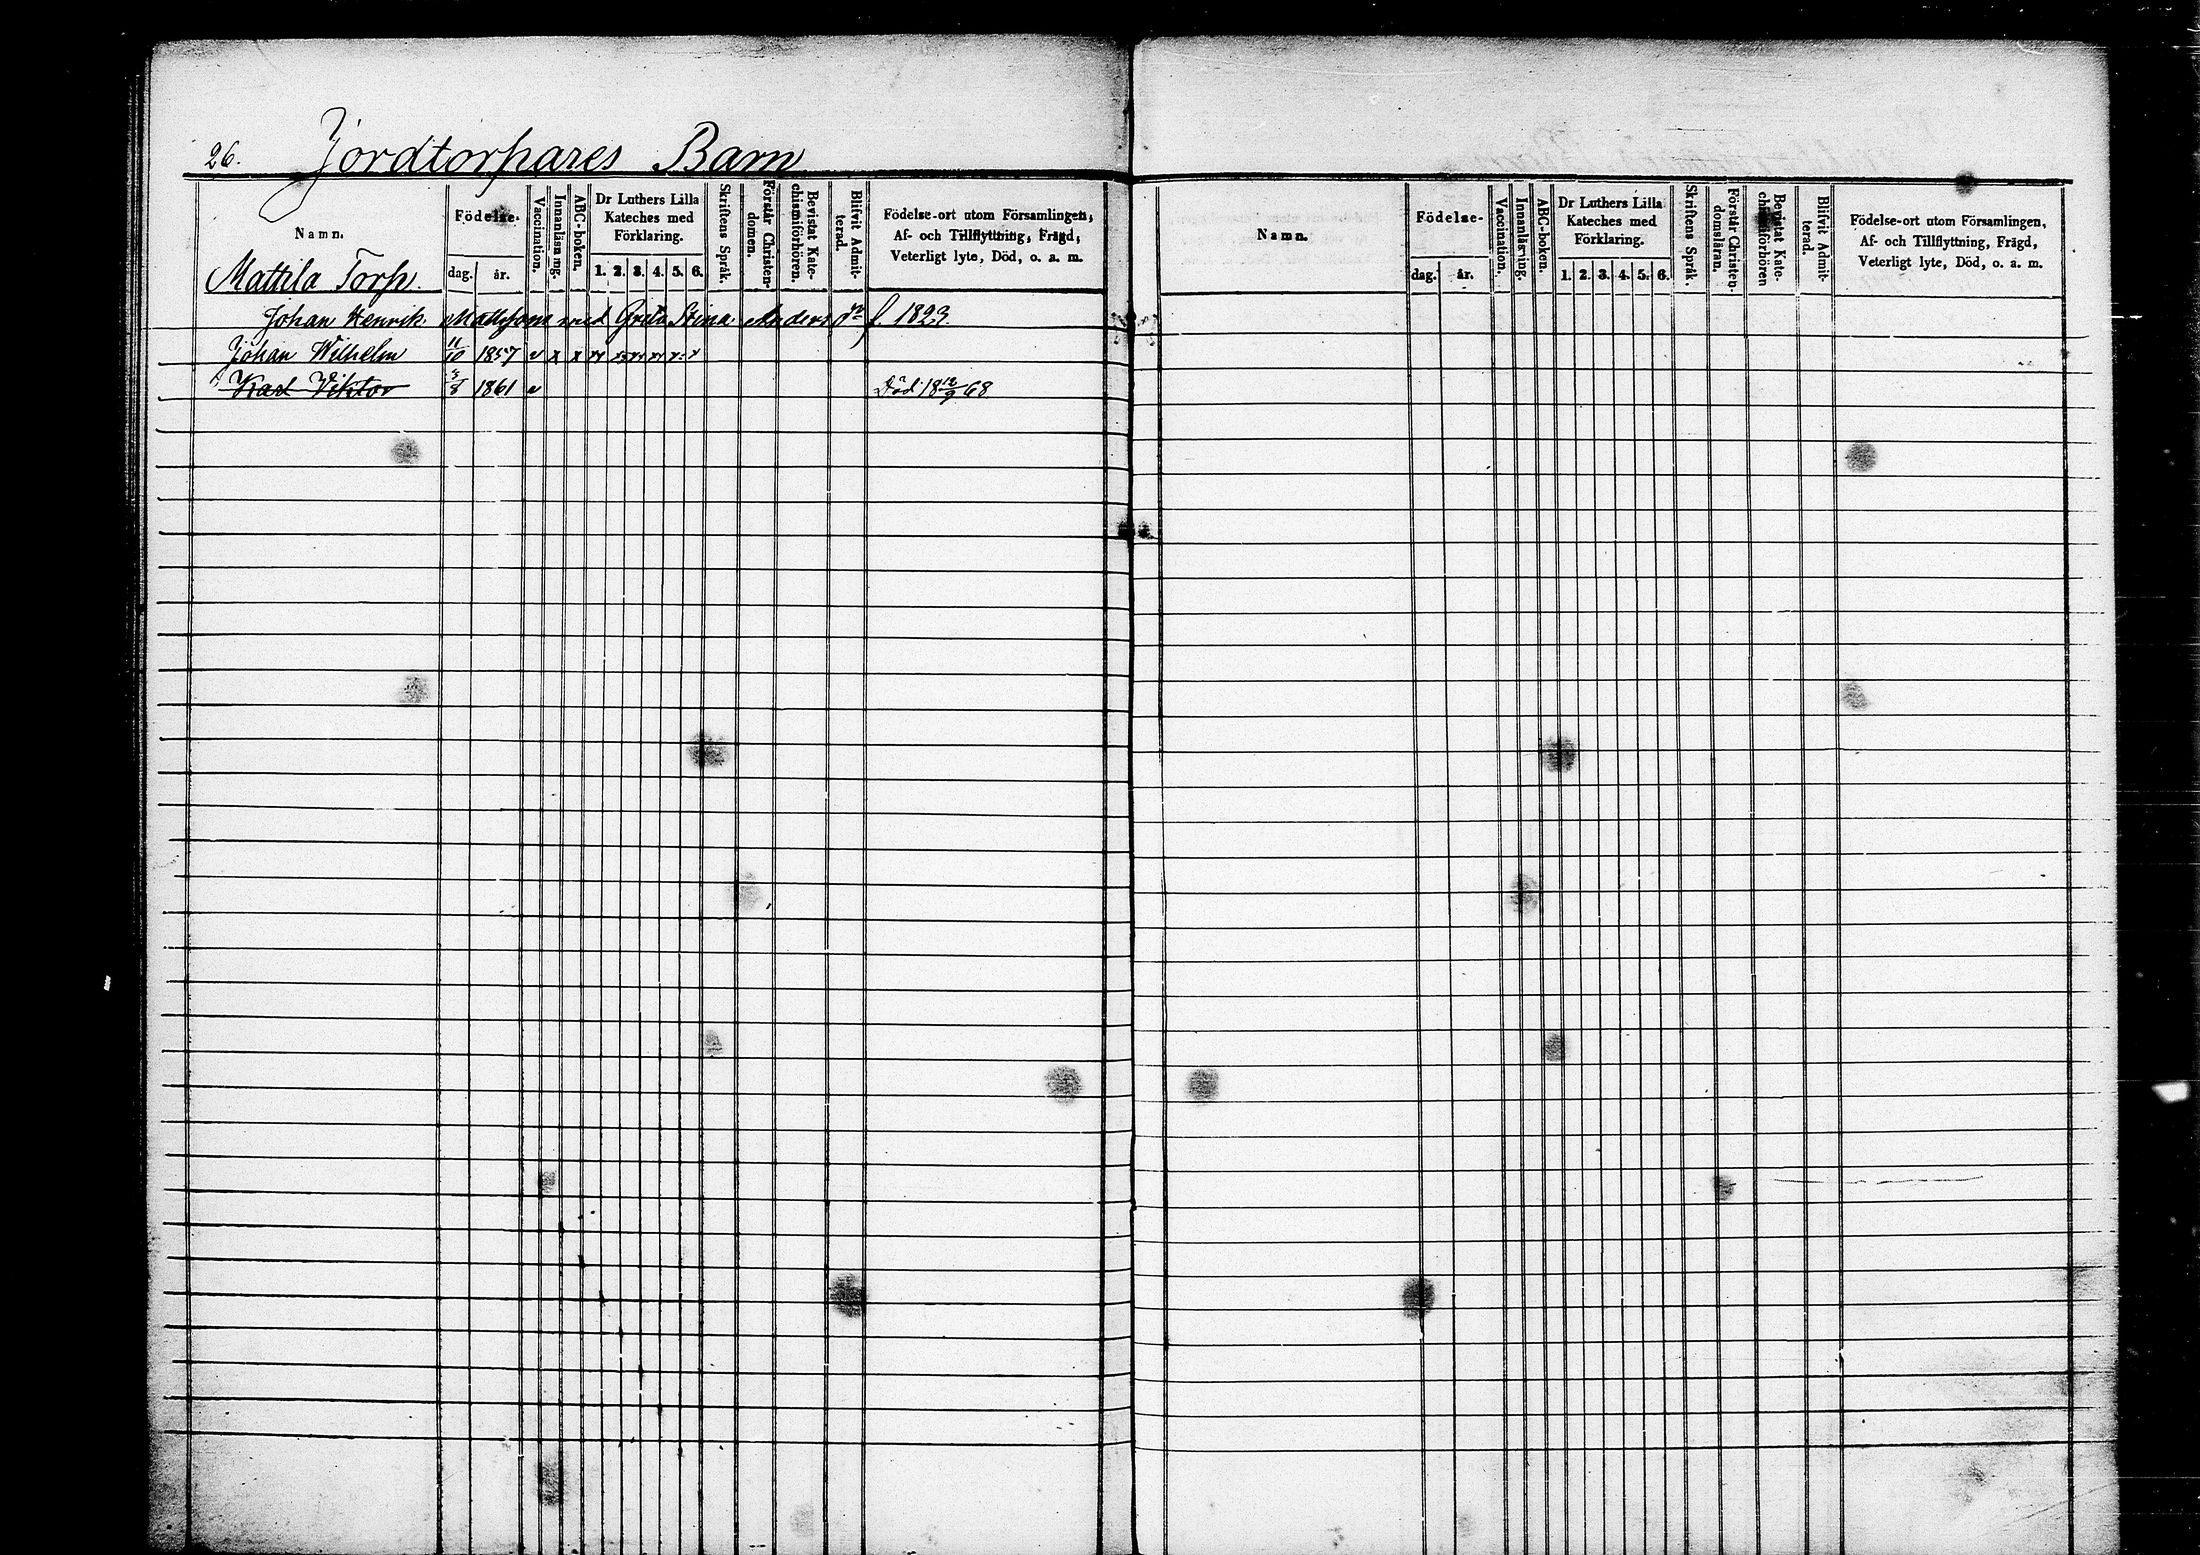 26. Jordtorpares Barn
Namn.
Födelse.
dag. år.
Vaccination.
Innanläsning.
ABC-boken.
Dr Luthers Lilla
Kateches med
Förklaring.
1. 2. 3. 4. 5. 6.
Skriftens Språk.
Förstår Christen-
domen.
Bevistat Kate-
chismiförhören.
Blifvit Admit-
terad.
Födelse-ort utom Församlingen,
Af- och Tillflyttning, Frägd,
Veterligt lyte, Död, o. a. m.
Mattila Torp.
Johan Henrik Mattsson med Greta Stina Anders dr f. 1823.
Johan Wilhelm 11/10 1857 v x x
Karl Viktor 1861 v Död 18 12/9 68
Namn.
Födelse-
dag. år.
Vaccination.
Innanläsning.
ABC-boken.
Dr Luthers Lilla
Kateches med
Förklaring.
1. 2. 3. 4. 5. 6.
Skriftens Språk.
Förstår Christen-
domsläran.
Bevistat Kate-
chismiförhören
Blifvit Admit-
terad.
Födelse-ort utom Församlingen,
Af- och Tillflyttning, Frägd,
Veterligt lyte, Död, o. a. m.